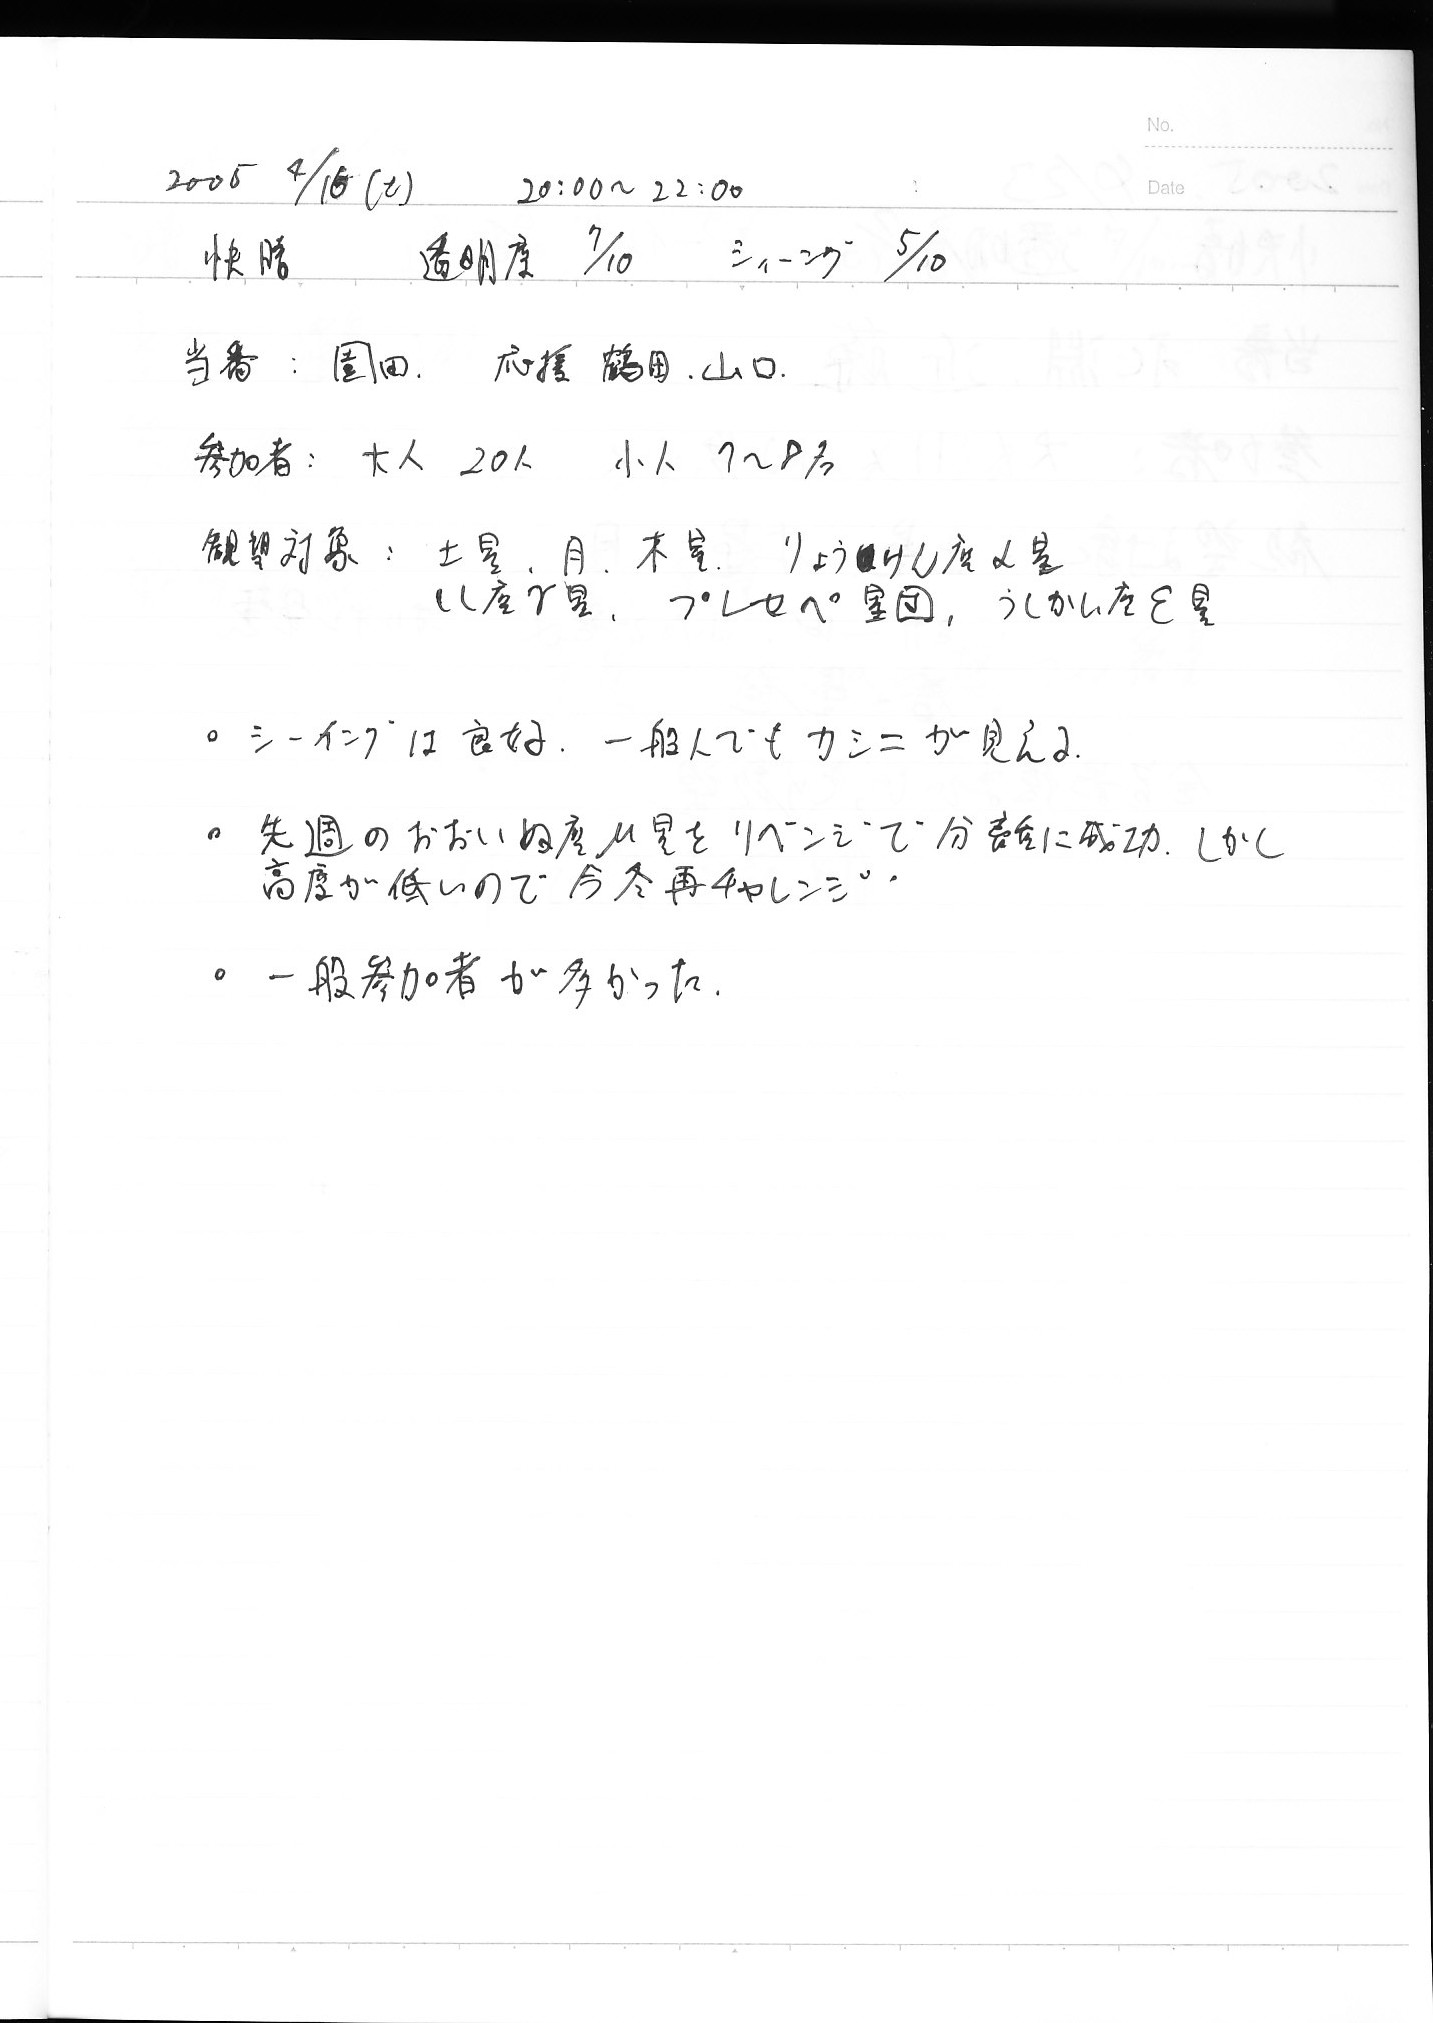 No.
Date
2005 4/16(土) 20:00〜22:00
快晴 透明度 7/10 シィーング 5/10
当番：園田. 応援 鶴田.山口.
参加者：大人 20人 小人 7〜8名
観望対象：土星、月、木星. りょうけん座α星
しし座γ星、プレセペ星団, うしかい座ε星
○ シーイングは良好. 一般人でもカシニが見える.
○ 先週のおおいぬ座μ星をリベンジで分離に成功. しかし
高度が低いので今冬再チャレンジ.
○ 一般参加者が多かった.